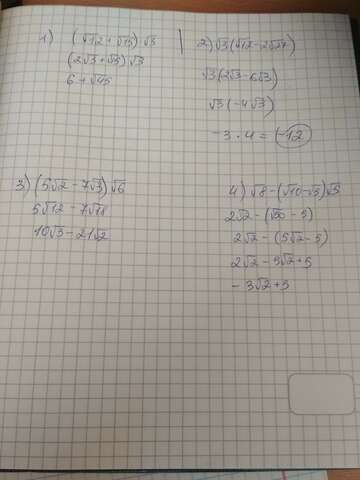 1) (√12 + √15) √3
(2√3 + √15) √3
6 + √45
2) √3 (√12 - 2√27)
√3 (2√3 - 6√3)
√3 (-4√3)
-3 · 4 = -12
3) (5√2 - 7√3) √6
5√12 - 7√18
10√3 - 21√2
4) √8 - (√10 - √5) √5
2√2 - (√50 - 5)
2√2 - (5√2 - 5)
2√2 - 5√2 + 5
- 3√2 + 5